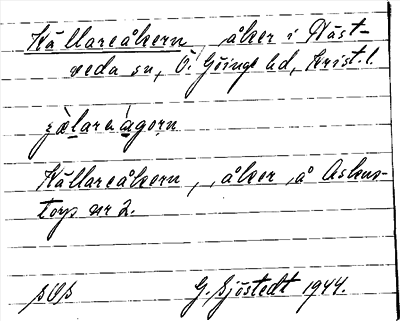 Källareåkern, åker i Näst-
veda sn, Ö. Göinge hd, Krist. l.
Källareåkern, åker å Askens-
torp nr 2.
SOS G. Sjöstedt 1944.